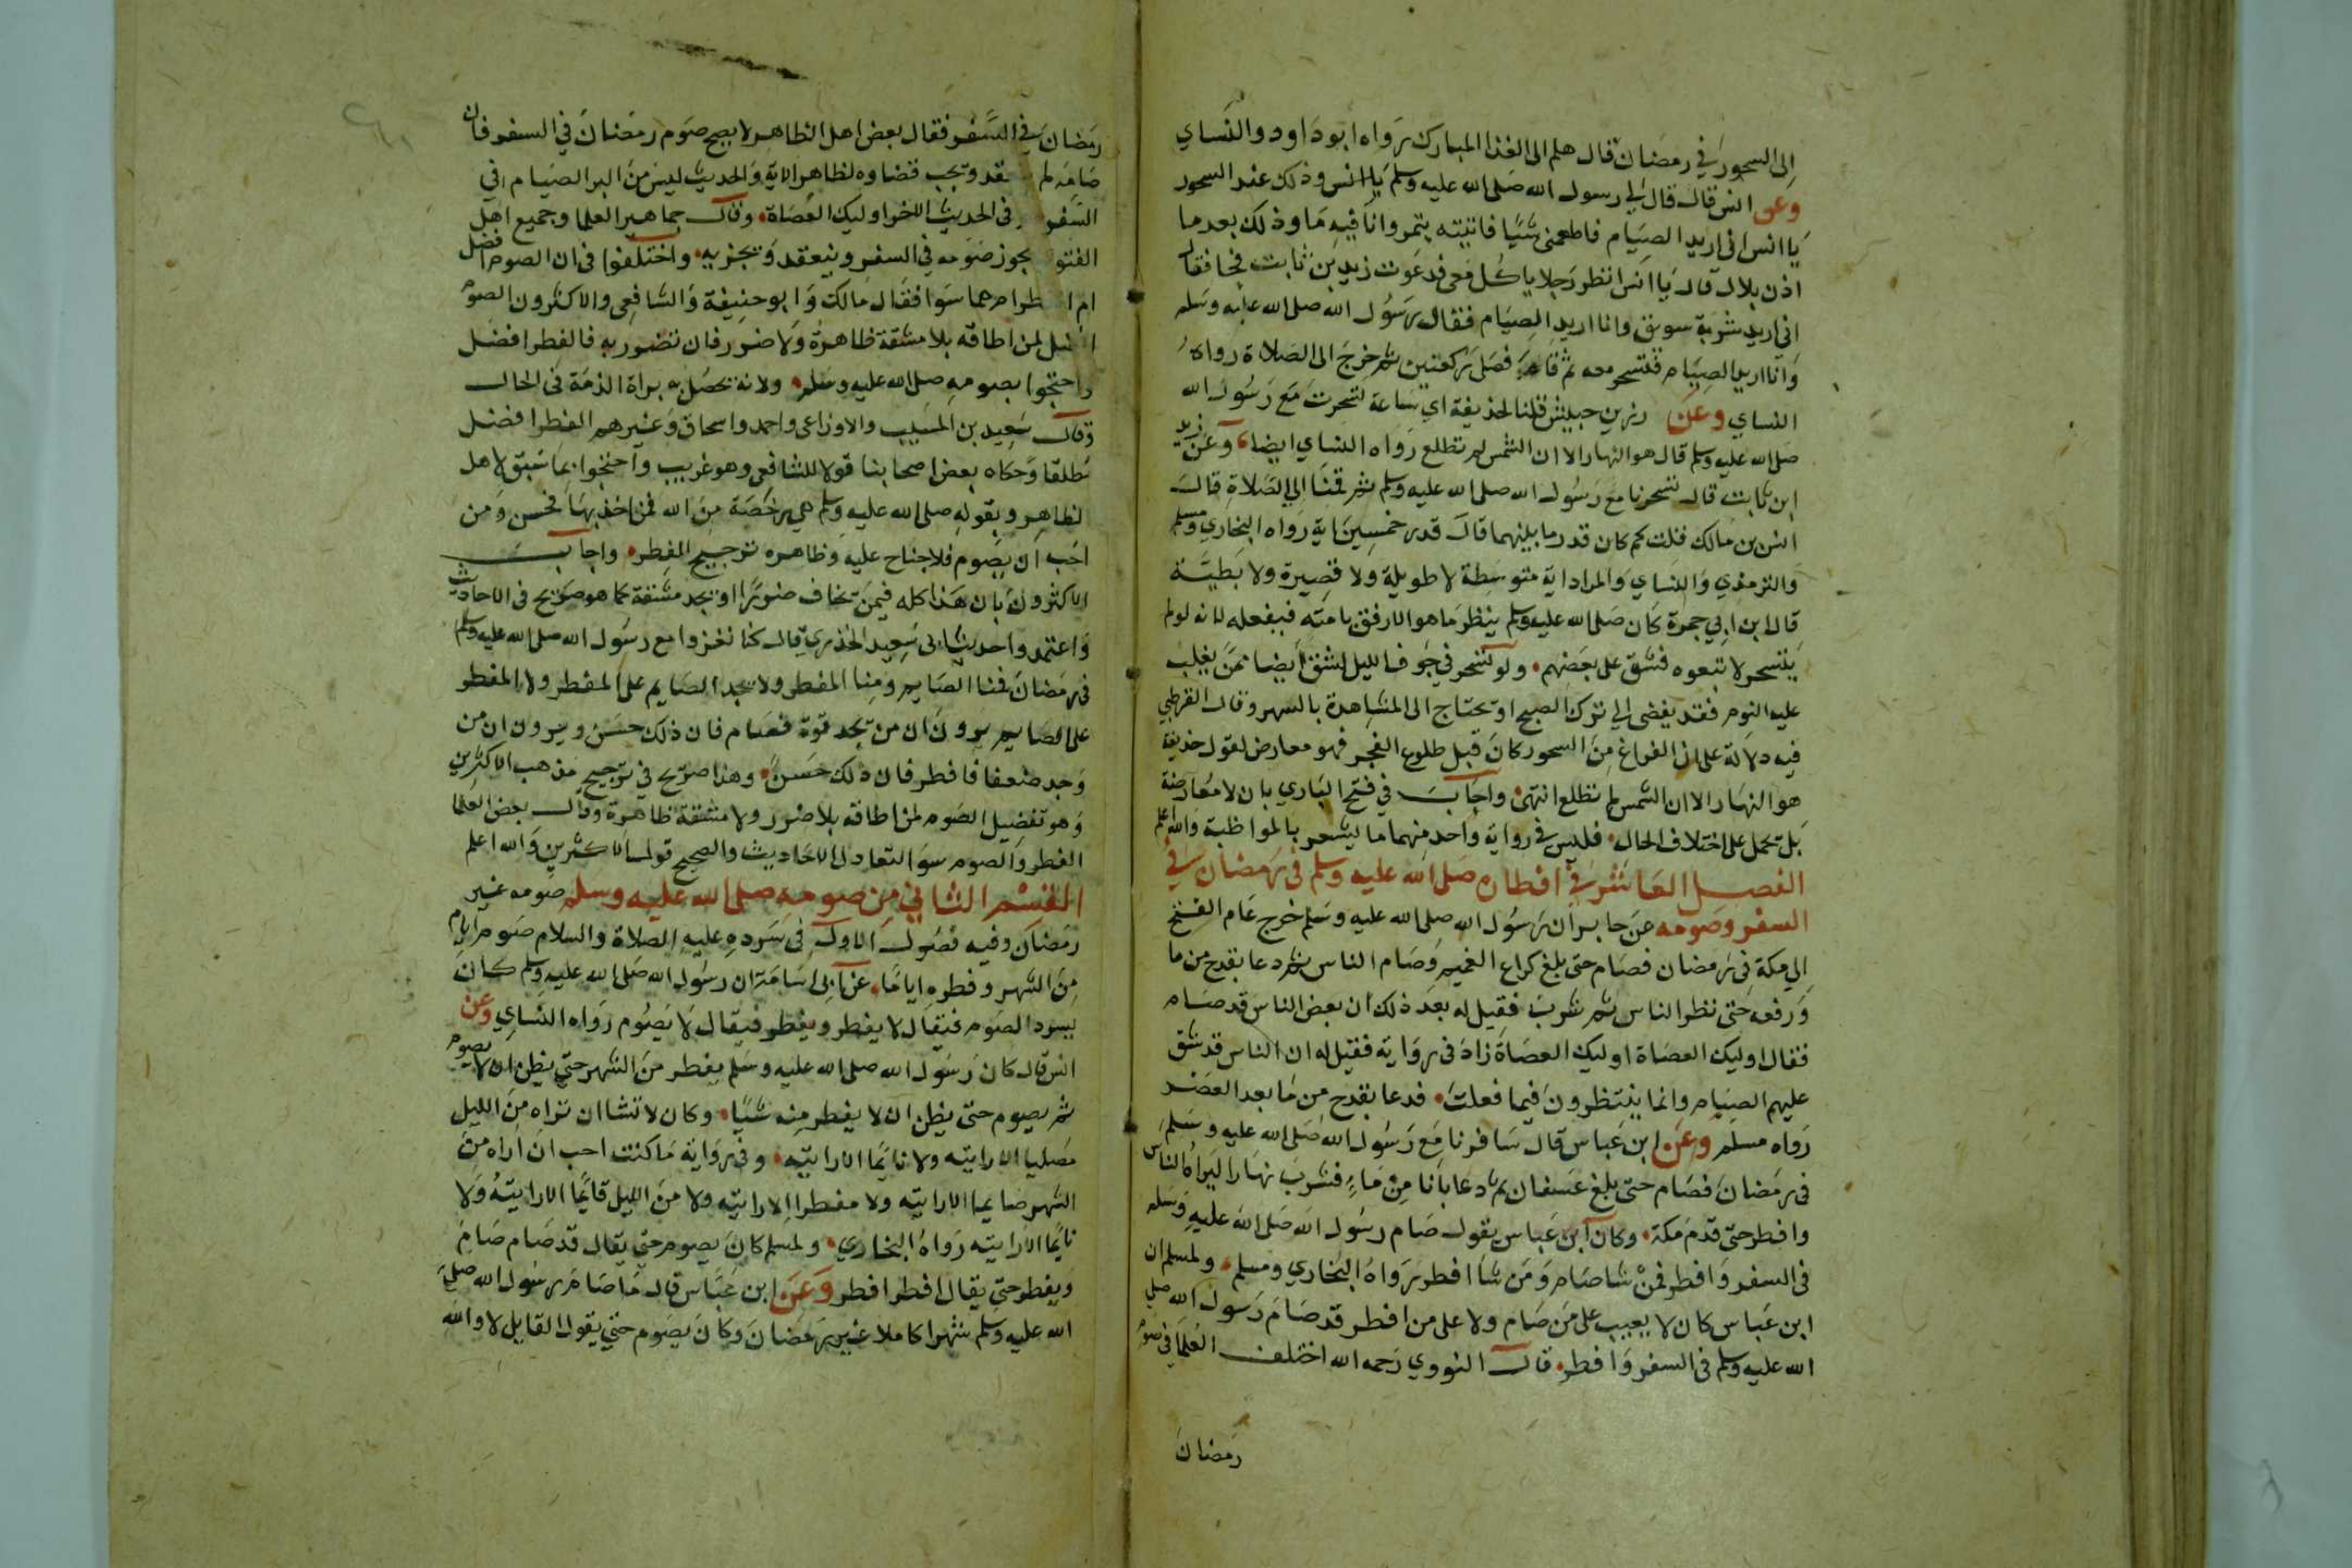 الى السحور في رمضان قال هلم الى الغذا المبارك رواه ابو داود والنساي
وعن انس قال قال لي رسول الله صلى الله عليه وسلم يا انس وذلك عند السحور
يا انس اني اريد الصيام فاطعمني شيئا فاتيته بتمر وانا فيه ما وذلك بعد ما
اذن بلال قال يا انس انظر رجلا ياكل معي فدعوت زيد بن ثابت فجا فقال
اني اريد شربة سويق وانا اريد الصيام فقال رسول الله صلى الله عليه وسلم
وانا اريد الصيام فتسحر معه ثم قام فصلى ركعتين ثم خرج الى الصلاة رواه
النساي وعن زر بن حبيش قلنا لحذيفة اي ساعة تسحرت مع رسول الله
صلى الله عليه وسلم قال هو النهار الا ان الشمس لم تطلع رواه النساي ايضا وعن زيد
ابن ثابت قال تسحرنا مع رسول الله صلى الله عليه وسلم ثم قمنا الى الصلاة قال
انس بن مالك قلت كم كان قدر ما بينهما قال قدر خمسين اية رواه البخاري ومسلم
والترمذي والنساي والمراد اية متوسطة لا طويلة ولا قصيرة ولا بطيئة
قال ابن ابي جمرة كان صلى الله عليه وسلم ينظر ما هو الارفق بامته فيفعله لانه لو لم
يتسحر لاتبعوه فشق على بعضهم ولو تسحر في جوف الليل لشق ايضا ممن يغلب
عليه النوم فقد يفضي الى ترك الصبح او يحتاج الى المشاهدة بالسهر وقال القرطبي
فيه دلالة على ان الفراغ من السحور كان قبل طلوع الفجر فهو معارض لقول حذيفة
هو النهار الا ان الشمس لم تطلع انتهى واجاب في فتح الباري بان لا معارضة
بل تحمل على اختلاف الحال فليس في رواية واحد منهما ما يشعر بالمواظبة والله اعلم
الفصل العاشر في افطاره صلى الله عليه وسلم في رمضان في
السفر وصومه عن جابر ان رسول الله صلى الله عليه وسلم خرج عام الفتح
الى مكة في رمضان فصام حتى بلغ كراع الغميم وصام الناس ثم دعا بقدح من ما
ورفعه حتى نظر الناس ثم شرب فقيل له بعد ذلك ان بعض الناس قد صام
فقال اوليك العصاة اوليك العصاة زاد في رواية فقيل له ان الناس قد شق
عليهم الصيام وانما ينتظرون فيما فعلت فدعا بقدح من ما بعد العصر
رواه مسلم وعن ابن عباس قال سافرنا مع رسول الله صلى الله عليه وسلم
في رمضان فصام حتى بلغ عسفان ثم دعا بانا من ماء فشرب نهارا ليراه الناس
وافطر حتى قدم مكة وكان ابن عباس يقول صام رسول الله صلى الله عليه وسلم
في السفر وافطر فمن شا صام ومن شا افطر رواه البخاري ومسلم ولمسلم ان
ابن عباس كان لا يعيب على من صام ولا على من افطر قد صام رسول الله صلى
الله عليه وسلم في السفر وافطر قال النووي رحمه الله اختلف العلما في صوم
رمضان
رمضان في السفر فقال بعض اهل الظاهر لا يصح صوم رمضان في السفر فان
صامه لم ينعقد ويجب قضاوه لظاهر الاية والحديث ليس من البر الصيام في
السفر وفي الحديث الاخر اوليك العصاة وقال جماهير العلما وجميع اهل
الفتوى يجوز صومه في السفر وينعقد ويجزيه واختلفوا في ان الصوم افضل
ام الفطر ام هما سوا فقال مالك وابو حنيفة والشافعي والاكثرون الصوم
افضل لمن اطاقه بلا مشقة ظاهرة ولا ضرر فان تضرر به فالفطر افضل
واحتجوا بصومه صلى الله عليه وسلم ولانه يحصل به براة الذمة في الحال
وقال سعيد بن المسيب والاوزاعي واحمد واسحاق وغيرهم الفطر افضل
مطلقا وحكاه بعض اصحابنا قولا للشافعي وهو غريب واحتجوا بما سبق لاهل
الظاهر وبقوله صلى الله عليه وسلم هي رخصة من الله فمن اخذ بها فحسن ومن
احب ان يصوم فلا جناح عليه وظاهره ترجيح الفطر واجاب
الاكثرون بان هذا كله فيمن يخاف ضررا او يجد مشقة كما هو صريح في الاحاديث
واعتمدوا حديث ابي سعيد الخذري قال كنا نغزوا مع رسول الله صلى الله عليه وسلم
في رمضان فمنا الصايم ومنا المفطر ولا يجد الصايم على المفطر ولا المفطر
على الصايم يرون ان من يجد قوة فصام فان ذلك حسن ويرون ان من
وجد ضعفا فافطر فان ذلك حسن وهذا صريح في ترجيح مذهب الاكثرين
وهو تفضيل الصوم لمن اطاقه بلا ضرر ولا مشقة ظاهرة وقال بعض العلما
الفطر والصوم سوا لتعادل الاحاديث والصحيح قول الاكثرين والله اعلم
القسم الثاني من صومه صلى الله عليه وسلم صومه غير
رمضان وفيه فصول الاول في سرده عليه الصلاة والسلام صوم ايام
من الشهر وفطره اياما عن ابي اسامة ان رسول الله صلى الله عليه وسلم كان
يسرد الصوم فيقال لا يفطر ويفطر فيقال لا يصوم رواه النساي وعن
انس قال كان رسول الله صلى الله عليه وسلم يفطر من الشهر حتى يظن ان لا يصوم
ثم يصوم حتى يظن ان لا يفطر منه شيئا وكان لا تشا ان تراه من الليل
مصليا الا رايته ولا نايما الا رايته وفي رواية ما كنت احب ان اراه من
الشهر صايما الا رايته ولا مفطرا الا رايته ولا من الليل قايما الا رايته ولا
نايما الا رايته رواه البخاري ولمسلم كان يصوم حتى يقال قد صام صام
ويفطر حتى يقال افطر افطر وعن ابن عباس قال ما صام رسول الله صلى
الله عليه وسلم شهرا كاملا غير رمضان وكان يصوم حتى يقول القايل لا والله